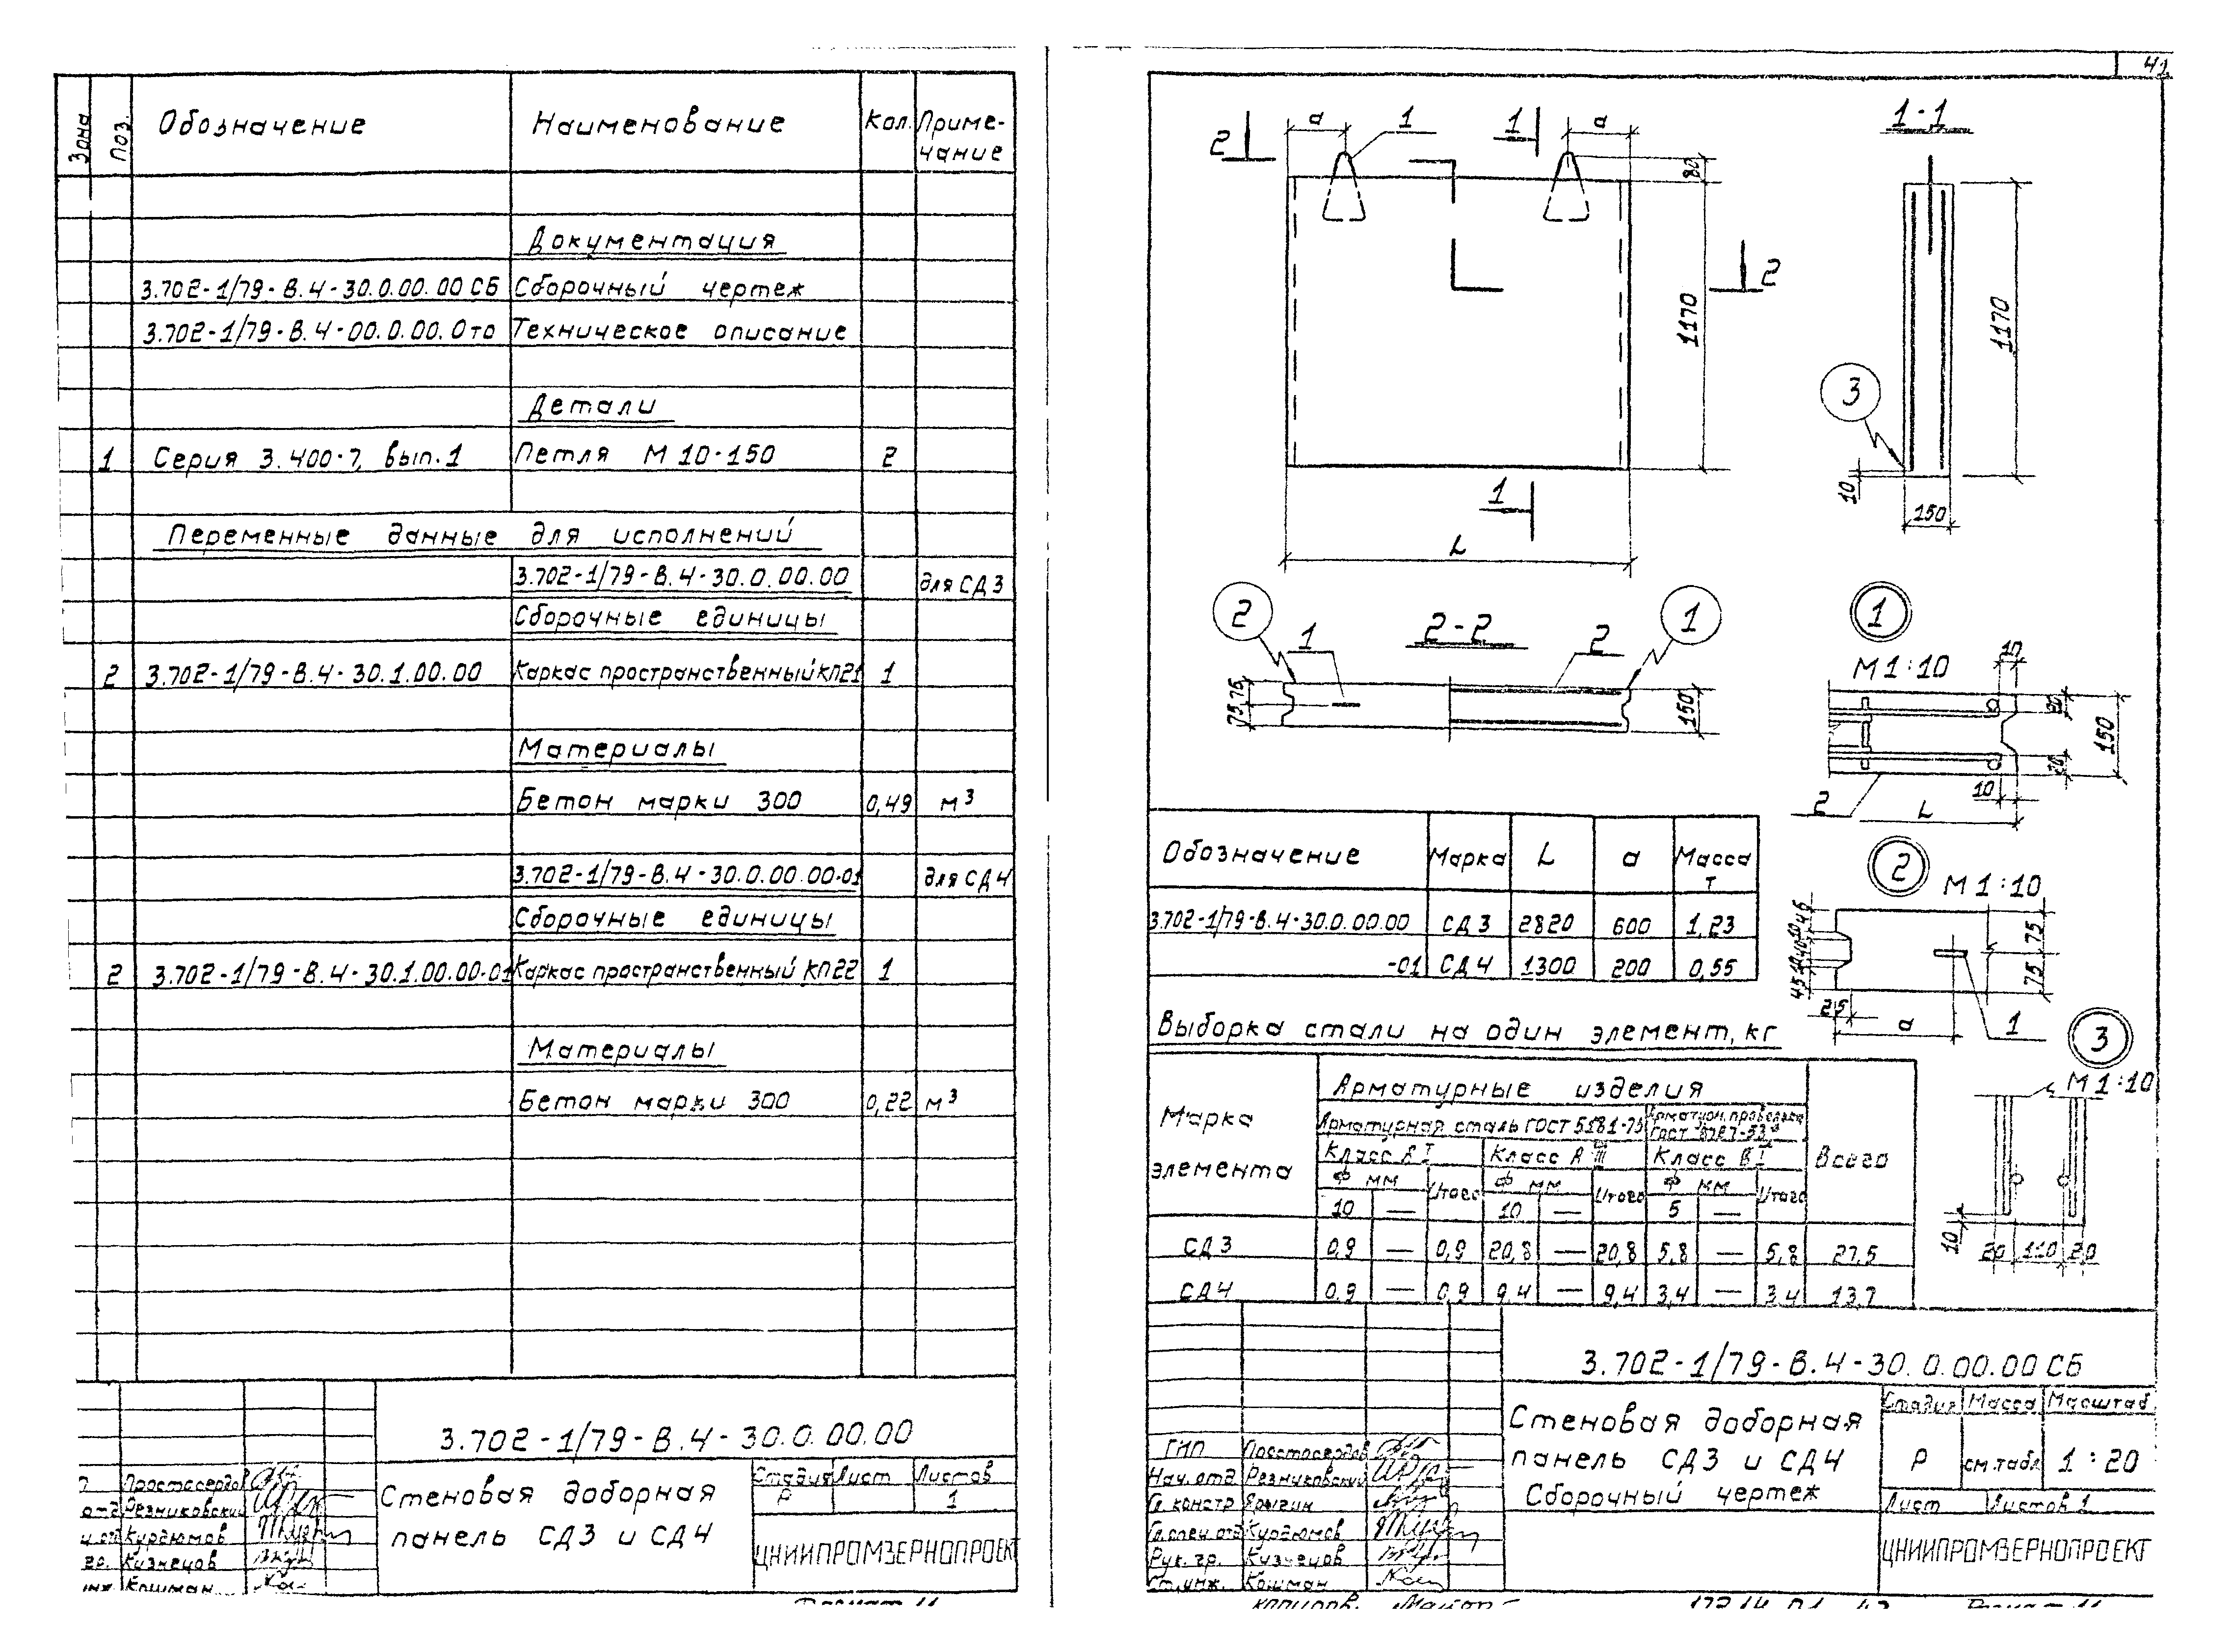 Зона Поз. Обозначение Наименование Кол. Приме-
чание
Документация
3.702-1/79-В.4-30.0.00.00 СБ Сборочный чертеж
3.702-1/79-В.4-00.0.00.0то Техническое описание
Детали
1 Серия 3.400-7, вып.1 Петля М 10-150 2
Переменные данные для исполнений
3.702-1/79-В.4-30.0.00.00 для СД3
Сборочные единицы
2 3.702-1/79-В.4-30.1.00.00 Каркас пространственный КП21 1
Материалы
Бетон марки 300 0,49 м3
3.702-1/79-В.4-30.0.00.00-01 для СД4
Сборочные единицы
2 3.702-1/79-В.4-30.1.00.00-01 Каркас пространственный КП22 1
Материалы
Бетон марки 300 0,22 м3
3.702-1/79-В.4-30.0.00.00
Простосердов
отд Резниковский
Курдюмов
гр. Кузнецов
инж. Кошман
Стеновая доборная
панель СД3 и СД4
Стадия Лист Листов
Р 1
ЦНИИПРОМЗЕРНОПРОЕКТ
41
2 а 1 1 а 1-1
80
2
1170
1170
3
10
150
1
L
2 1 2-2 2 1
75 75
150
1
М 1:10
10
20
150
20
10
2 L
2 М 1:10
45 10 40 10 45
75
75
25
а 1
3
М 1:10
10
20 110 20
Обозначение Марка L а Масса
т
3.702-1/79-В.4-30.0.00.00 СД3 2820 600 1,23
-01 СД4 1300 200 0,55
Выборка стали на один элемент, кг
Марка
элемента
Арматурные изделия
Арматурная сталь ГОСТ 5781-75
ГОСТ 6727-53
Класс А I Класс А III Класс В I Всего
Ф мм Итого Ф мм Итого Ф мм Итого
10 — 10 — 5 —
СД3 0,9 — 0,9 20,8 — 20,8 5,8 — 5,8 27,5
СД4 0,9 — 0,9 9,4 — 9,4 3,4 — 3,4 13,7
3.702-1/79-В.4-30.0.00.00 СБ
Стеновая доборная
панель СД3 и СД4
Сборочный чертеж
Стадия Масса Масштаб
Р см.табл. 1:20
Лист Листов 1
ЦНИИПРОМЗЕРНОПРОЕКТ
ГИП Простосердов
Нач. отд. Резниковский
Гл. констр. Ярыгин
Гл.спец.отд Курдюмов
Рук. гр. Кузнецов
Ст. инж. Кошман